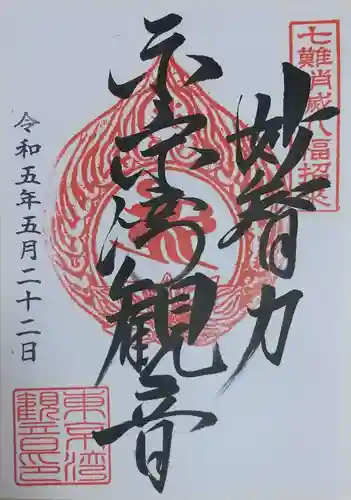 七難消滅七福招来
妙智力
東京湾観音
令和五年五月二十二日
東京湾
観音印